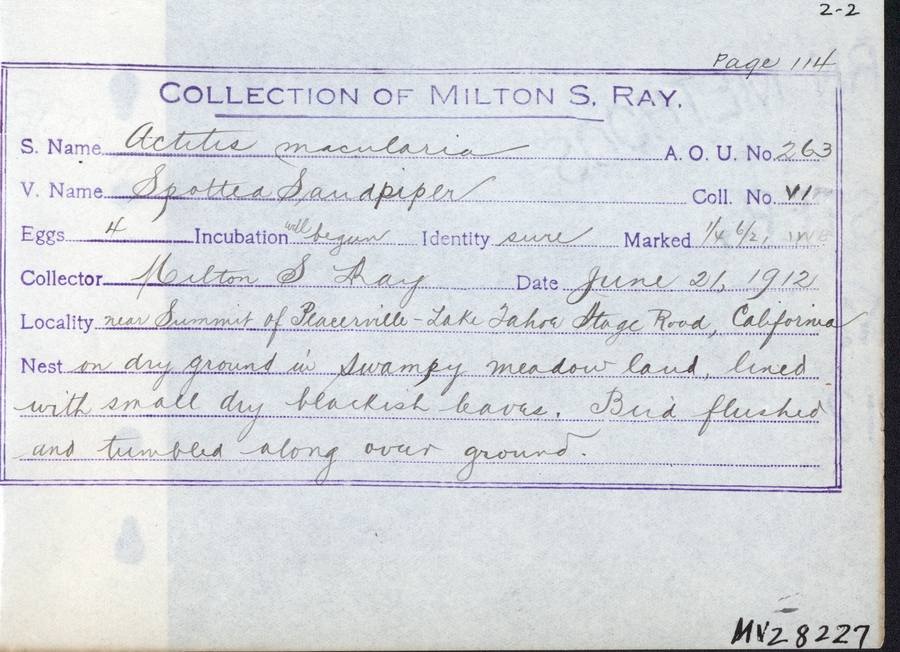 2-2
Page 114
COLLECTION OF MILTON S. RAY.
S. Name Actitis macularia A. O. U. No. 263
V. Name Spotted Sandpiper Coll. No. VI
Eggs 4 Incubation well begun Identity sure Marked 1/4 6/21
Collector Milton S Ray Date June 21, 1912
Locality near Summit of Placerville-Lake Tahoe Stage Road, California
Nest on dry ground in swampy meadow land, lined
with small dry blackish leaves. Bird flushed
and tumbled along over ground.
MVZ 8227